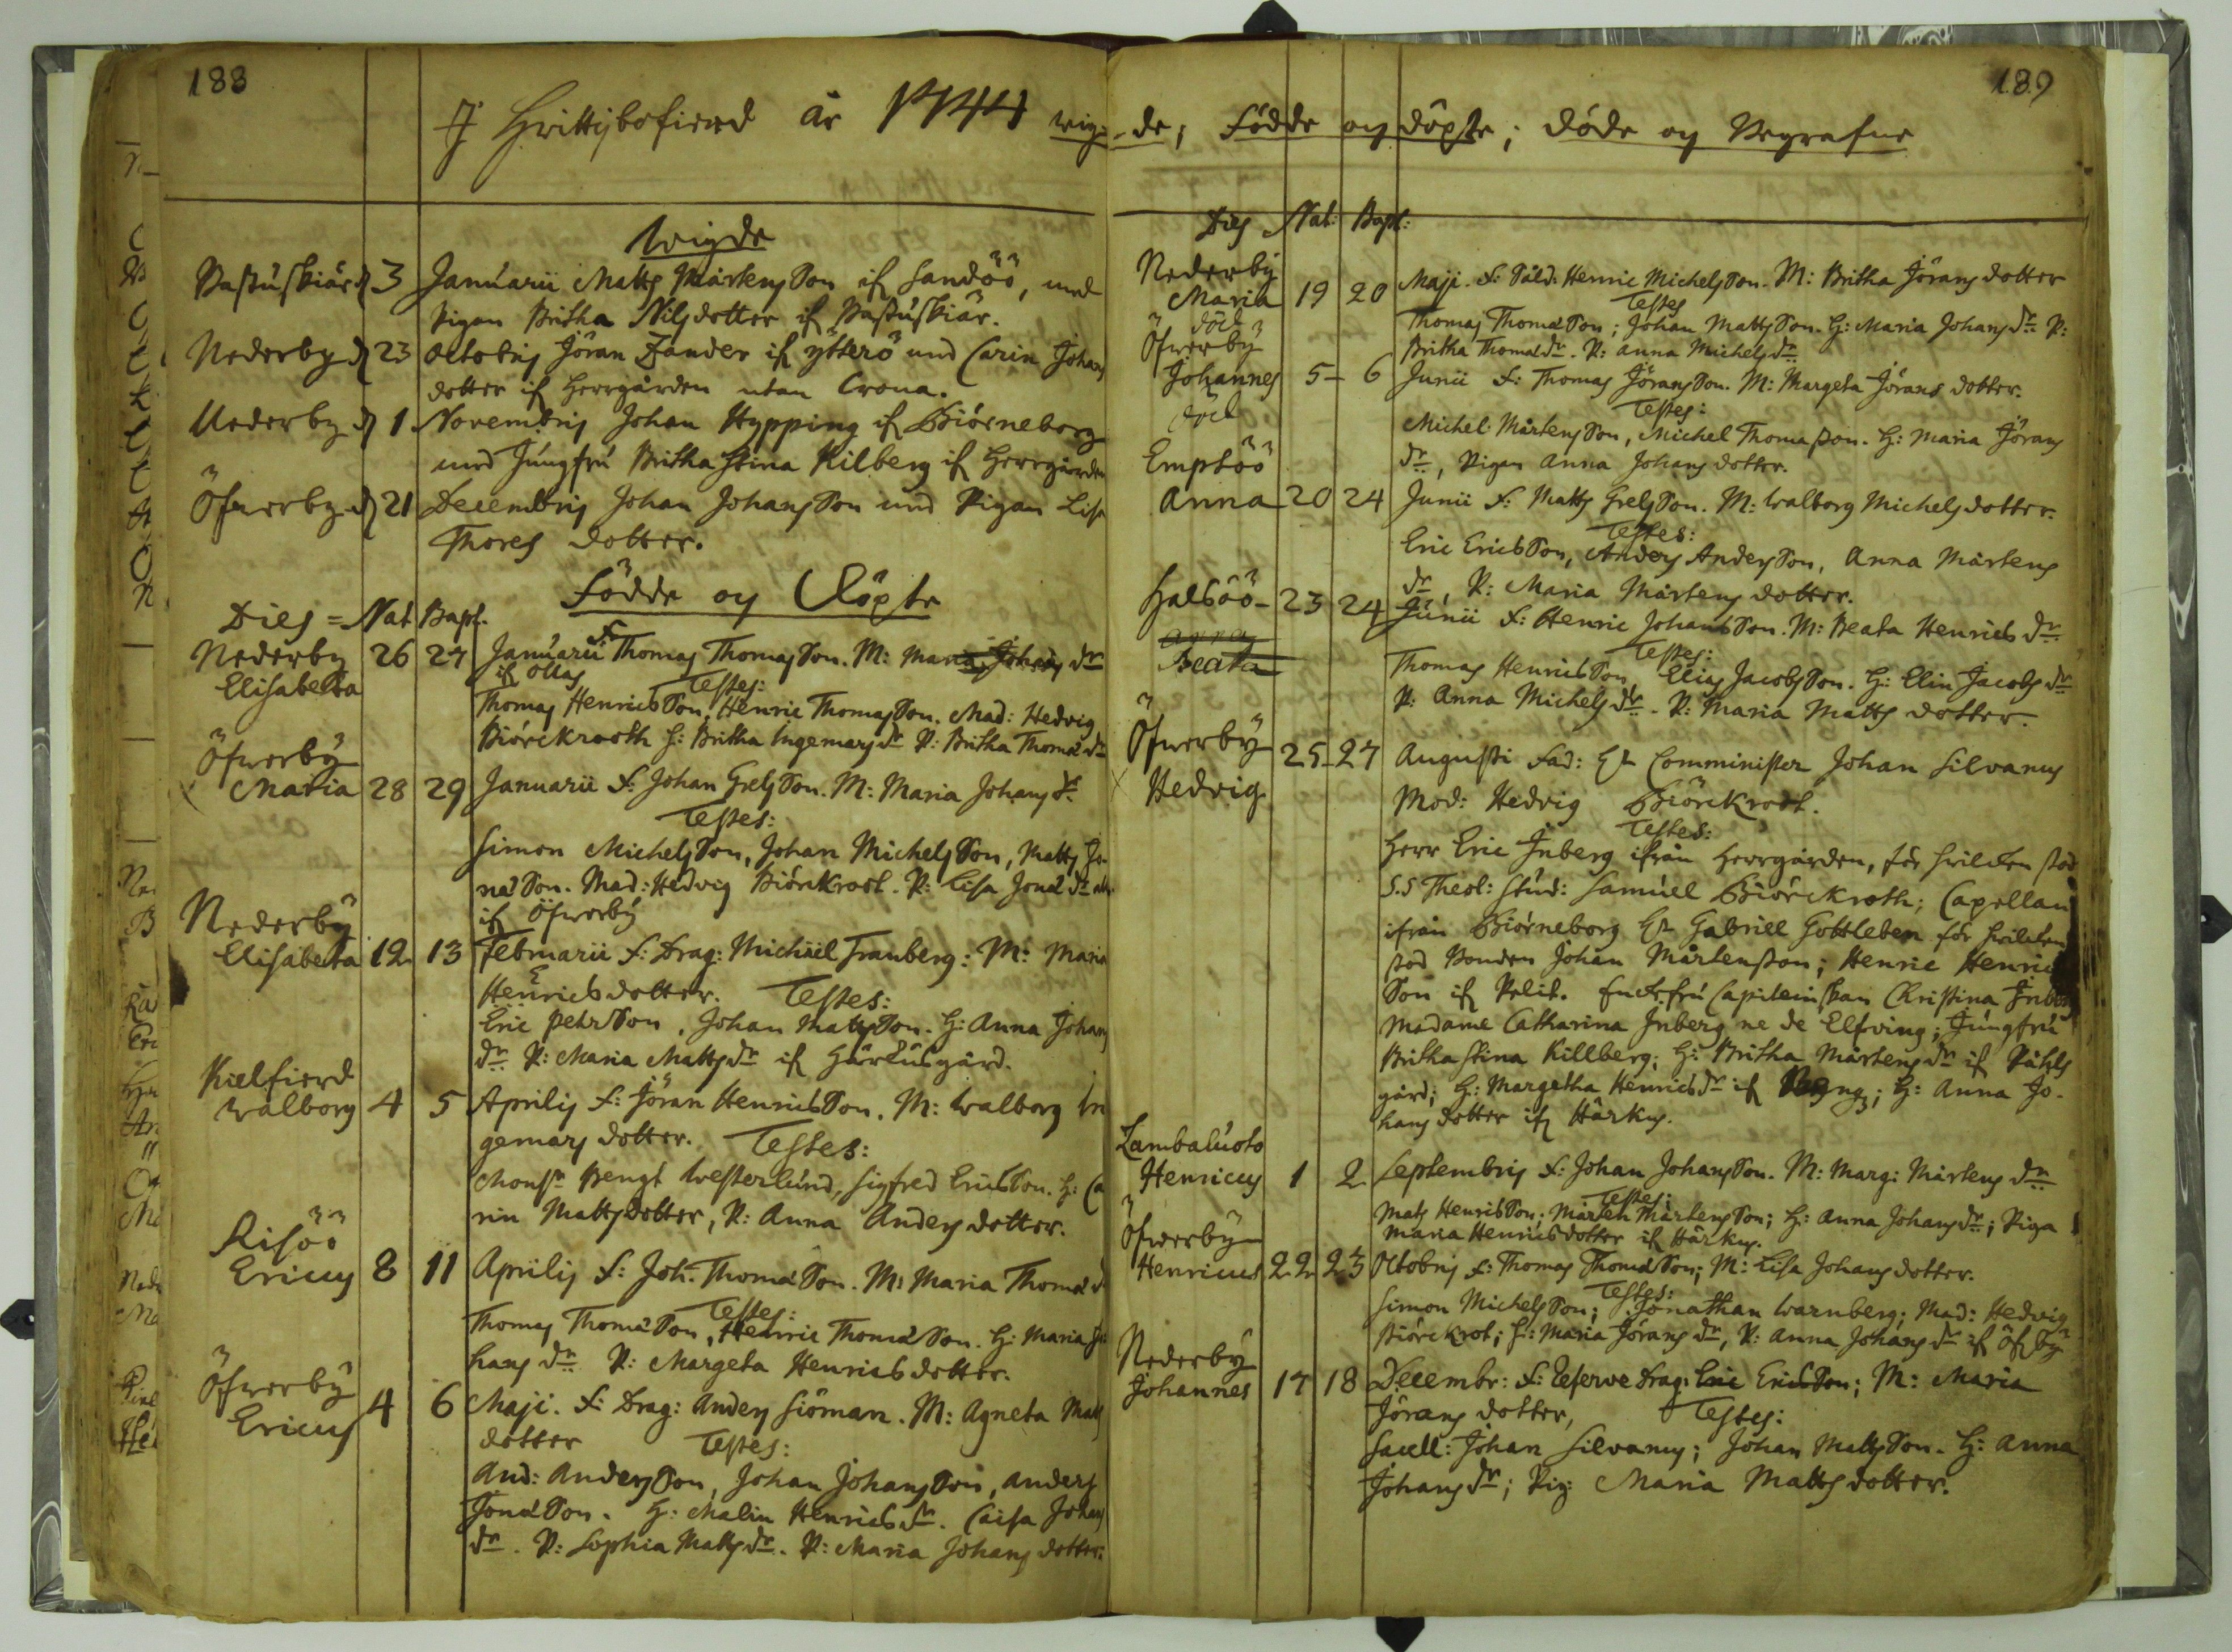 188
I Hvittisbofierd år 1744 wig=
Wigde
Pastuskiär d 3 Januarii Matts Mårtens Son if Sandöö, med
Pigan Britha Nils dotter if Pastuskiär.
Nederby d 23 Octobris Jöran Zander if ytterö med Carin Johans
dotter if Herrgården utan Crona.
Nederby d 1. Novembris Johan Hypping if Biörneborg
med Jungfru Britha Stina Kilberg if Herrgården
Öfwerby d 21 Decembris Johan Johans Son med Pigan Lisa
Thores dotter.
Födde og Döpte
Dies = Nat Bapt.
Nederby 26 27 Januarii F: Thomas Thomas Son. M: Maria Johans dr
Elisabetha if Ollas
Testes:
Thomas Henrics Son, Henric Thomas Son. Mad: Hedvig
Biörckrooth H: Britha Ingemars dr P: Britha Thomæ dr
Öfwerby
Maria 28 29 Januarii F: Johan Grels Son. M: Maria Johans dr
Testes:
Simon Michels Son, Johan Michels Son, Matts Jo-
næ Son. Mad: Hedvig Biörckroot. P: Lisa Jonæ dr
if Öfwerby
Nederby
Elisabeta 12 13 Februarii F: Drag: Michael Tranberg: M: Maria
Henrics dotter. Testes:
Eric Pehr Son, Johan Mats Son. H: Anna Johans
dr P: Maria Matts dr if Härkusgård.
Kielfierd
Walborg 4 5 Aprilis F: Jöran Henrics Son. M: Walborg In
gemars dotter. Testes:
Monsr Bengt Westerlund, Sigfred Erics Son. H: Ca
rin Matts dotter, P: Anna Anders dotter.
Risöö
Ericus 8 11 Aprilis F: Joh. Thomæ Son. M: Maria Thomæ d
Testes:
Thomas Thomæ Son, Henric Thomæ Son. H: Maria Jo
hans dr P: Margeta Henrics dotter.
Öfwerby
Ericus 4 6 Maji. F: Drag: Anders Siöman. M: Agneta Matts
dotter Testes:
And: Anders Son, Johan Johans Son, Anders
Jonæ Son. H: Malin Henrics dr. Caisa Johans
dr. P: Sophia Matts dr. P: Maria Johans dotter.
189
=de; Födde og döpte; döde og Begrafne
Dies Nat: Bapt:
Nederby
Maria 19 20 Maji. F: Såld: Henric Michels Son. M: Britha Jörans dotter
död
Testes
Thomas Thomæ Son; Johan Matts Son. H: Maria Johans dr P:
Britha Thomæ dr. P: Anna Michels dr.
Öfwerby
Johannes 5 - 6 Junii F: Thomas Jörans Son. M: Margeta Jörans dotter.
död
Testes:
Michel Mårtens Son, Michel Thomasson. H: Maria Jörans
dr, Pigan Anna Johans dotter.
Emptöö
Anna 20 24 Junii F: Matts Grels Son. M: Walborg Michels dotter.
Testes:
Eric Erics Son, Anders Anders Son, Anna Mårtens
dr, P: Maria Mårtens dotter.
Halsöö - 23 24 Junii F: Henric Johans Son. M: Beata Henrics dr
Anna
Beata
Testes:
Thomas Henrics Son, Elias Jacobs Son. H: Elin Jacobs dr
P: Anna Michels dr. P: Maria Matts dotter.
Öfwerby 25 - 27 Augusti Fad: Hr Comminister Johan Silvanus
Hedvig Mod: Hedvig Biörckroot.
Testes:
Herr Eric Inberg ifrån Herrgården, för hvilcken stod
S.S Theol: Stud: Samuel Biörckroth; Capellan
ifrån Biörneborg Hr Gabriel Gottleben för hvilcken
stod Bonden Johan Mårtensson; Henric Henrics
Son if Pelit. Fru Capiteinskan Christina Inberg
Madame Catharina Inberg ne de Elfving; Jungfru
Britha Stina Killberg; H: Britha Mårtens dr if Påhls
gård; H: Margetha Henrics dr if; H: Anna Jo-
hans dotter if Härkus.
Lambaluoto
Henricus 1 2 Septembris F: Johan Johans Son. M: Marg: Mårtens dr
Testes:
Mats Henrics Son; Mårten Mårtens Son; H: Anna Johans dr; Piga
Maria Henrics dotter if Härkus.
Öfwerby
Henricus 22 23 Octobris F: Thomas Thomæ Son; M: Lisa Johans dotter.
Testes:
Simon Michels Son; Jonathan Warnberg; Mad: Hedvig
Biörckrot; H: Maria Jörans dr, P: Anna Johans dr if Öf.by
Nederby
Johannes 17 18 Decembr: F: Reserve Drag: Eric Erics Son; M: Maria
Jörans dotter, Testes:
Sacell: Johan Silvanus; Johan Matts Son. H: Anna
Johans dr; Pig: Maria Matts dotter.